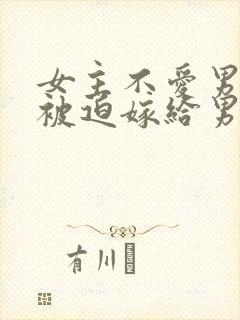 女主不愛男
被迫嫁給男
有川